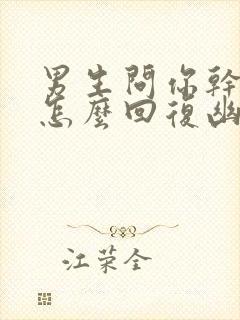 男生問你幹
怎麼回復幽
江荣全